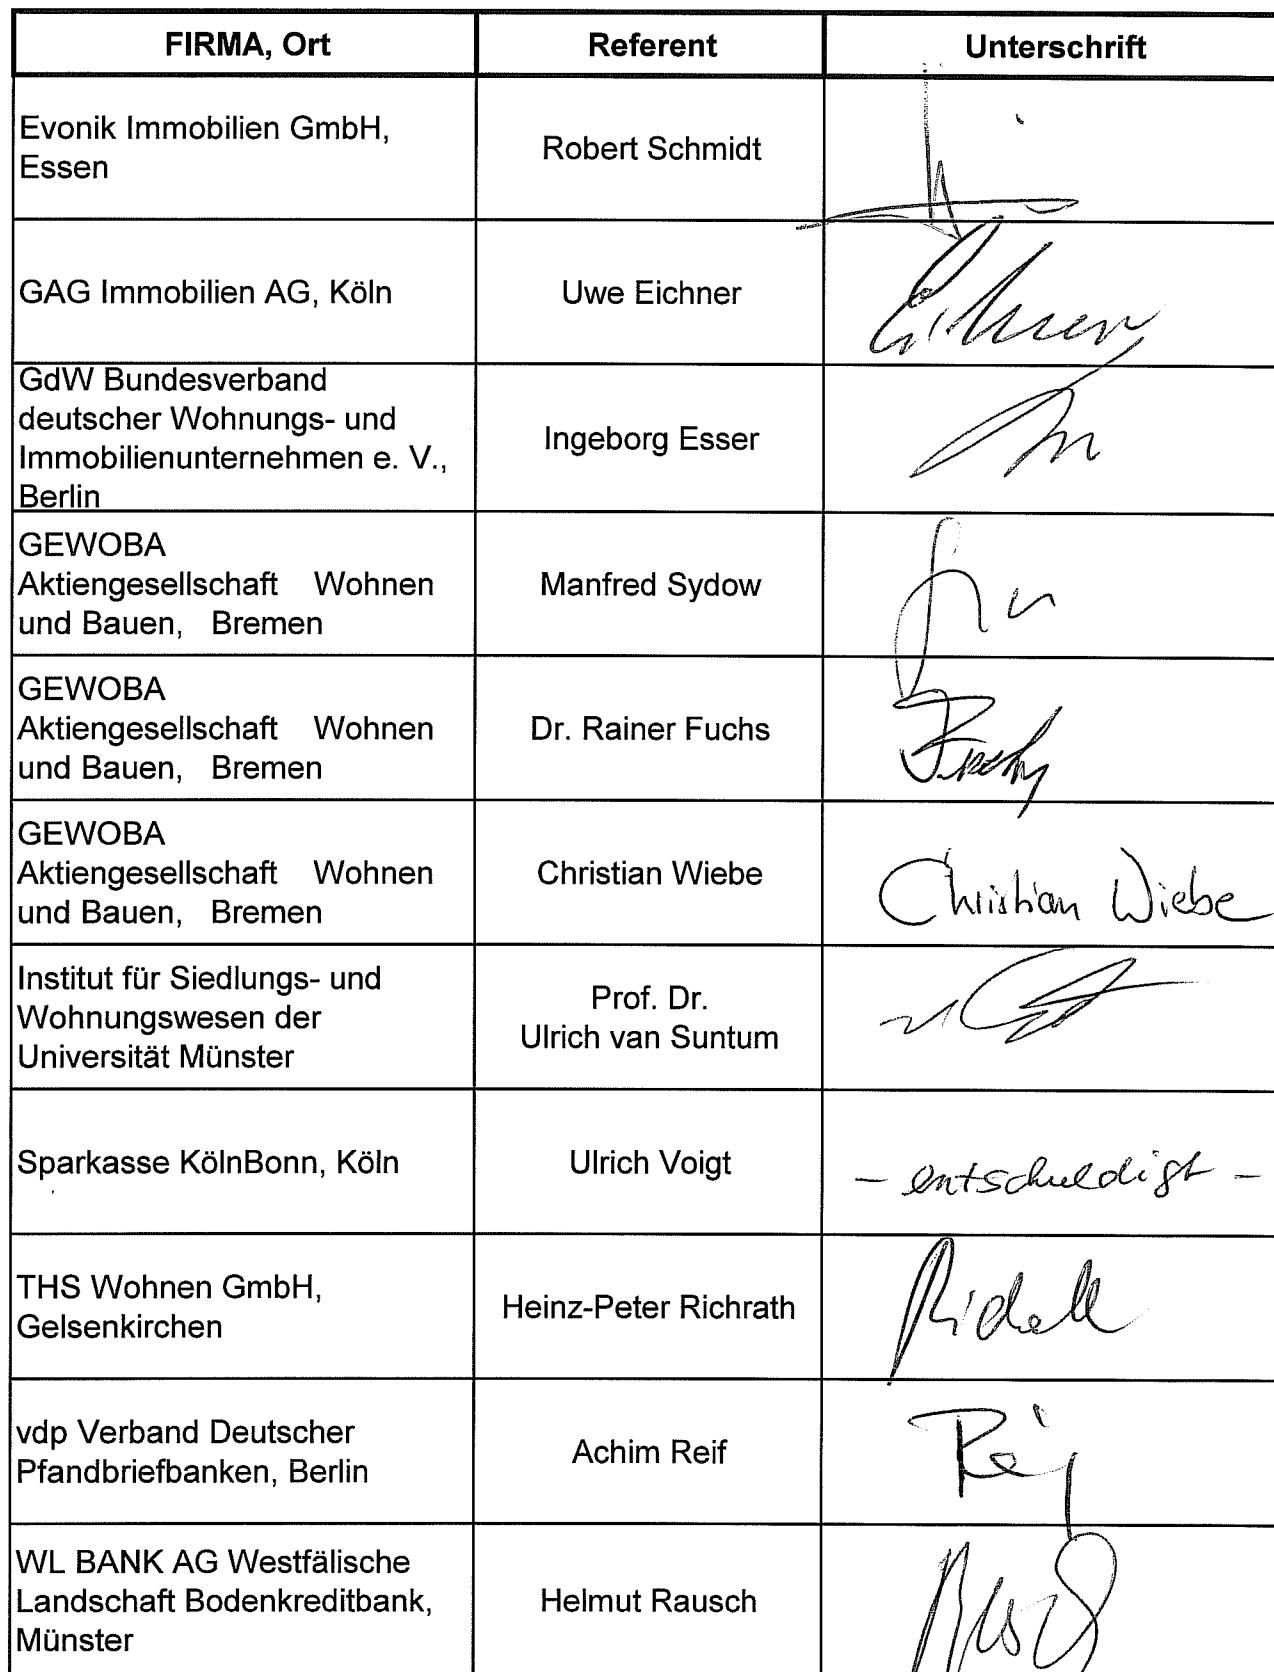 FIRMA, Ort
Referent
Unterschrift
Evonik Immobilien GmbH,
Essen
Robert Schmidt
GAG Immobilien AG, Köln
Uwe Eichner
GdW Bundesverband
deutscher Wohnungs- und
Immobilienunternehmen e. V.,
Berlin
Ingeborg Esser
GEWOBA
Aktiengesellschaft Wohnen
und Bauen, Bremen
Manfred Sydow
GEWOBA
Aktiengesellschaft Wohnen
und Bauen, Bremen
Dr. Rainer Fuchs
GEWOBA
Aktiengesellschaft Wohnen
und Bauen, Bremen
Christian Wiebe
Christian Wiebe
Institut für Siedlungs- und
Wohnungswesen der
Universität Münster
Prof. Dr.
Ulrich van Suntum
Sparkasse KölnBonn, Köln
Ulrich Voigt
- entschuldigt -
THS Wohnen GmbH,
Gelsenkirchen
Heinz-Peter Richrath
vdp Verband Deutscher
Pfandbriefbanken, Berlin
Achim Reif
WL BANK AG Westfälische
Landschaft Bodenkreditbank,
Münster
Helmut Rausch